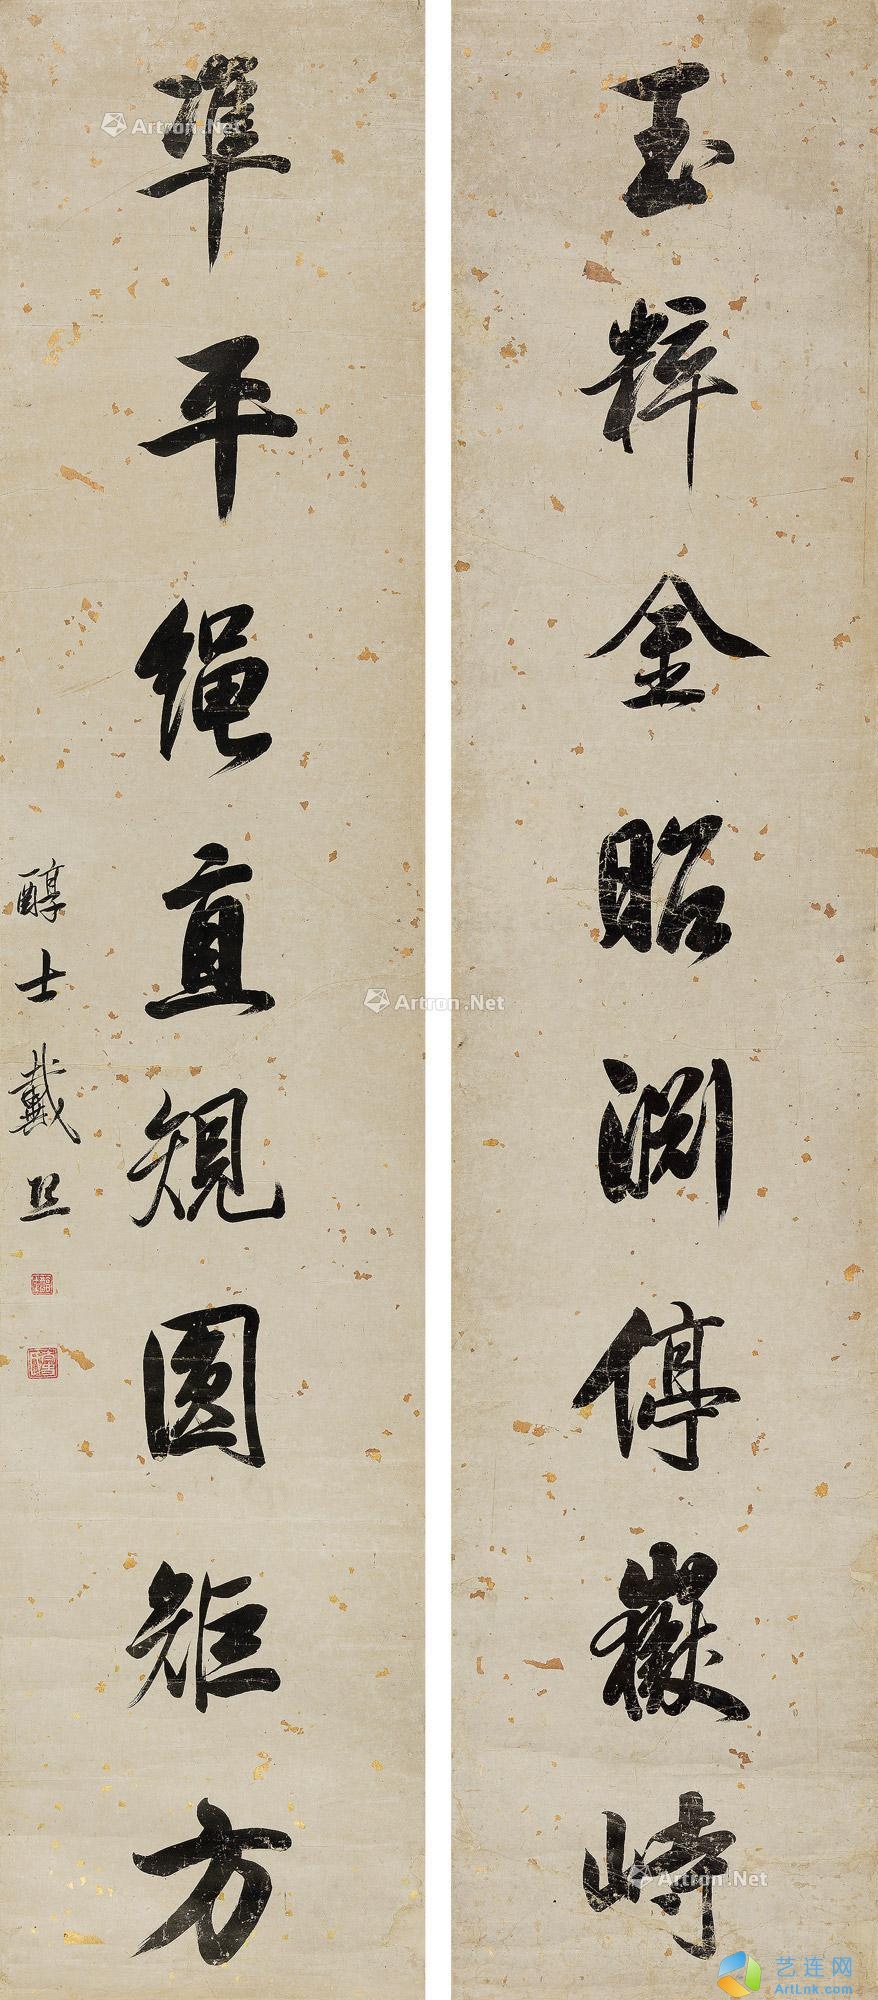 玉粹金昭渊停嶽峙
準平绳直規圓矩方
醇士戴熙
Artron.Net
Artron.Net
Artron.Net
艺连网
ArtLnk.com